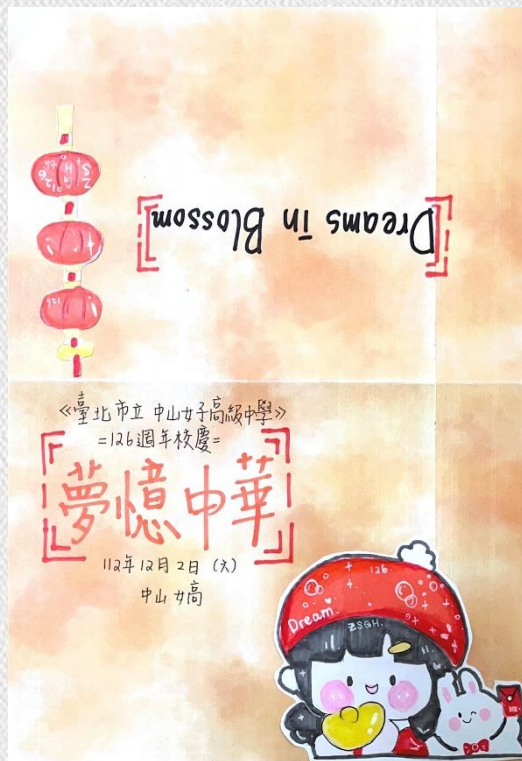 Dreams in Blossom
126
《臺北市立 中山女子高級中學》
=126週年校慶=
夢憶中華
112年12月2日 (六)
中山女高
126
Dream
ZSGH.